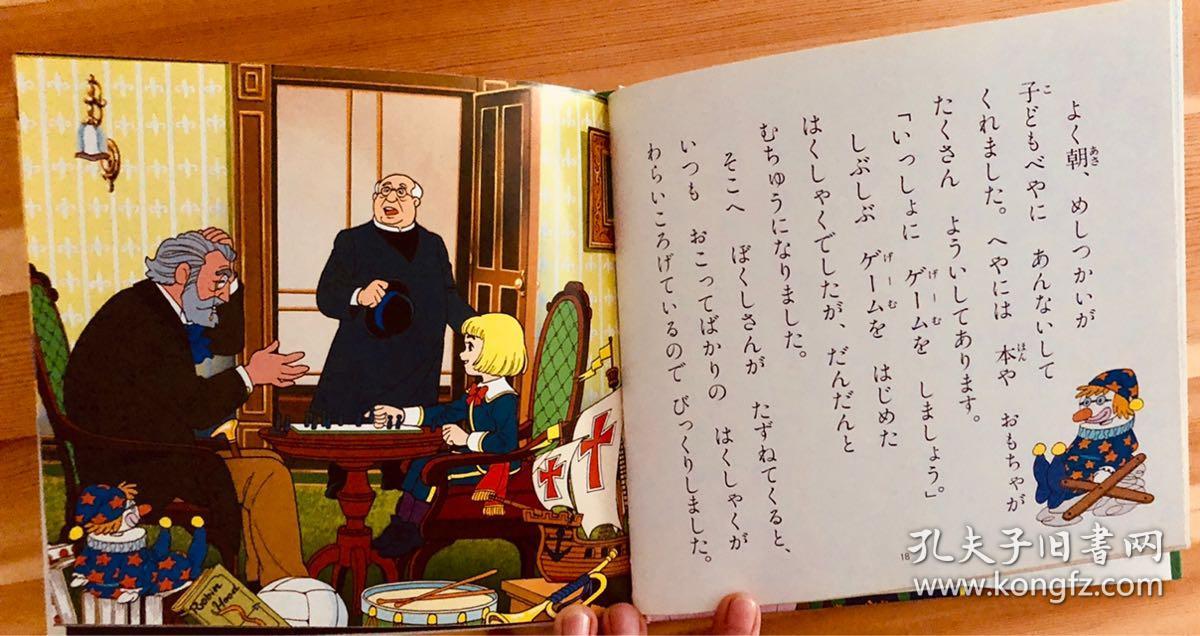 よく朝、めしつかいが
子どもべやに　あんないして
くれました。へやには　本や　おもちゃが
たくさん　よういしてあります。
「いっしょに　ゲームを　しましょう。」
しぶしぶ　ゲームを　はじめた
はくしゃくでしたが、だんだんと
むちゅうになりました。
そこへ　ぼくしさんが　たずねてくると、
いつも　おこってばかりの　はくしゃくが
わらいころげているので　びっくりしました。
18
Robin
Hood
孔夫子旧書网
www.kongfz.com